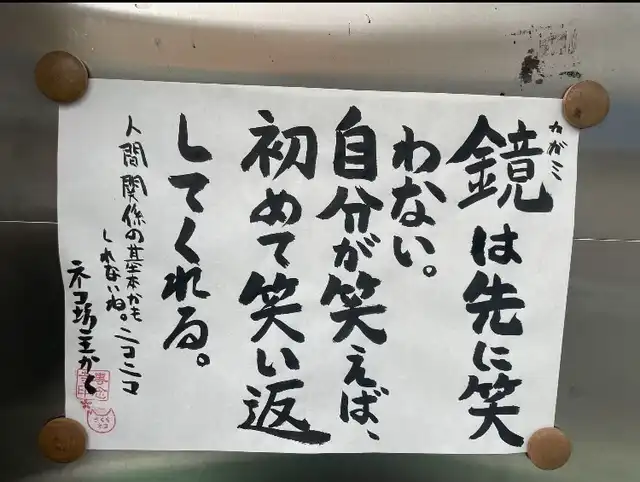 カガミ
鏡は先に笑
わない。
自分が笑えば、
初めて笑い返
してくれる。
人間関係の基本かも
しれないね。ニコニコ
ネコ坊主かく